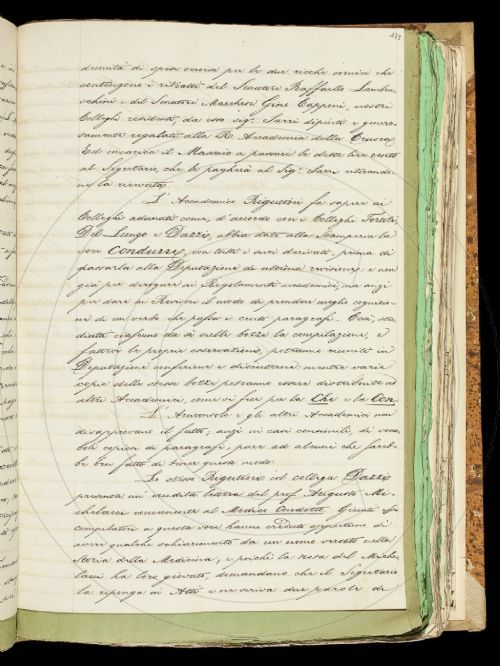 179
dennità di spesa occorsa per le due ricche cornici che
contengono i ritratti del Senatore Raffaello Lambru-
schini e del Senatore Marchese Gino Capponi, nostri
Colleghi residenti, da esso sig.r Sarri dipinti e genero-
samente regalati alla R. Accademia della Crusca.
Ed incarica il Massaio a passare le dette lire cento
al Segretario, che le pagherà al Sig.r Sarri ritiran-
ne la ricevuta.
L'Accademico Rigutini fa sapere ai
Colleghi adunati come, d'accordo con i Colleghi Tortoli,
Del Lungo e Dazzi, abbia dato alla Stamperia la
voce Condurre, con tutti i suoi derivati, prima di
passarla alla Deputazione di ultima revisione; e non
già per derogare ai Regolamenti accademici, ma anzi
per dare ai Revisori il modo di prendere meglio cognizio-
ne di un verbo che passa i cento paragrafi. Così, stu-
diata ciascuno da sè sulle bozze la compilazione, e
fattevi le proprie osservazioni, potranno riuniti in
Deputazione conferirne e discuterne: mentre varie
copie delle stesse bozze potranno essere distribuite ad
altri Accademici, come si fece per la Che e la Con.
L'Arciconsolo e gli altri Accademici non
disapprovano il fatto; anzi in casi consimili, di voca-
boli copiosi di paragrafi, pare ad alcuni che sareb-
be ben fatto di tener questo modo.
Lo stesso Rigutini col collega Dazzi
presenta un'erudita lettera del prof. Augusto Mi-
chelacci concernente al Medico Condotto. Giunti essi
compilatori a questa voce hanno creduto opportuno di
avere qualche schiarimento da un uomo versato nella
storia della Medicina; e poichè la nota del Miche-
lacci ha loro giovato, domandano che il Segretario
la riponga in Atti e ne scriva due parole di